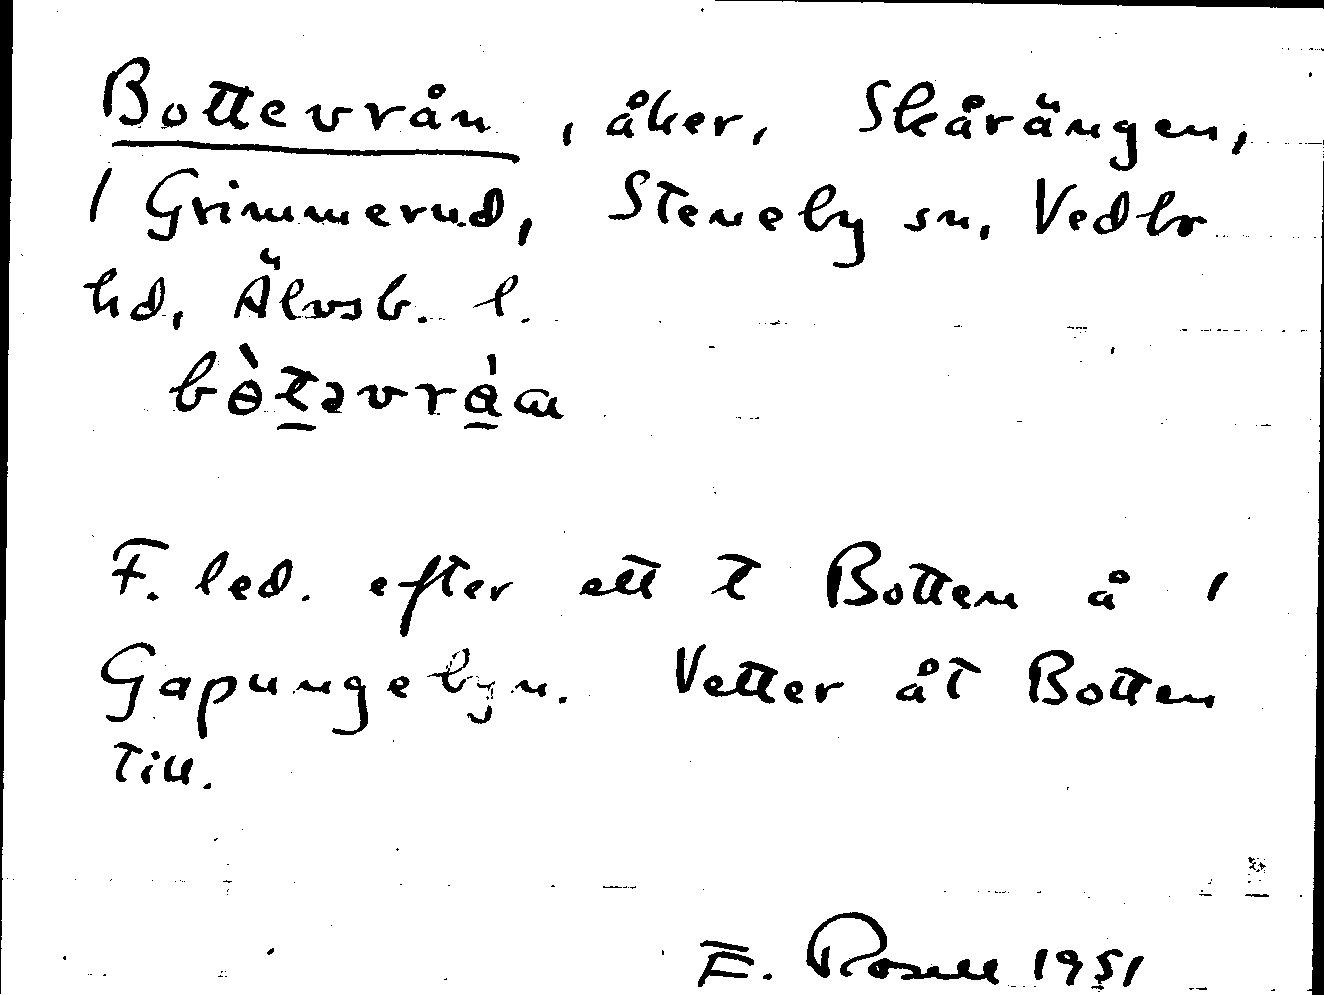 Bottevrån, åker, Skårängen,
1 Grimmerud, Steneby sn, Vedbo
hd, Älvsb. l.
bòt̲əvrǻ̲a
F. led. efter ett t Botten å 1
Gapungebyn. Vetter åt Botten
till.
E. Rosell 1951